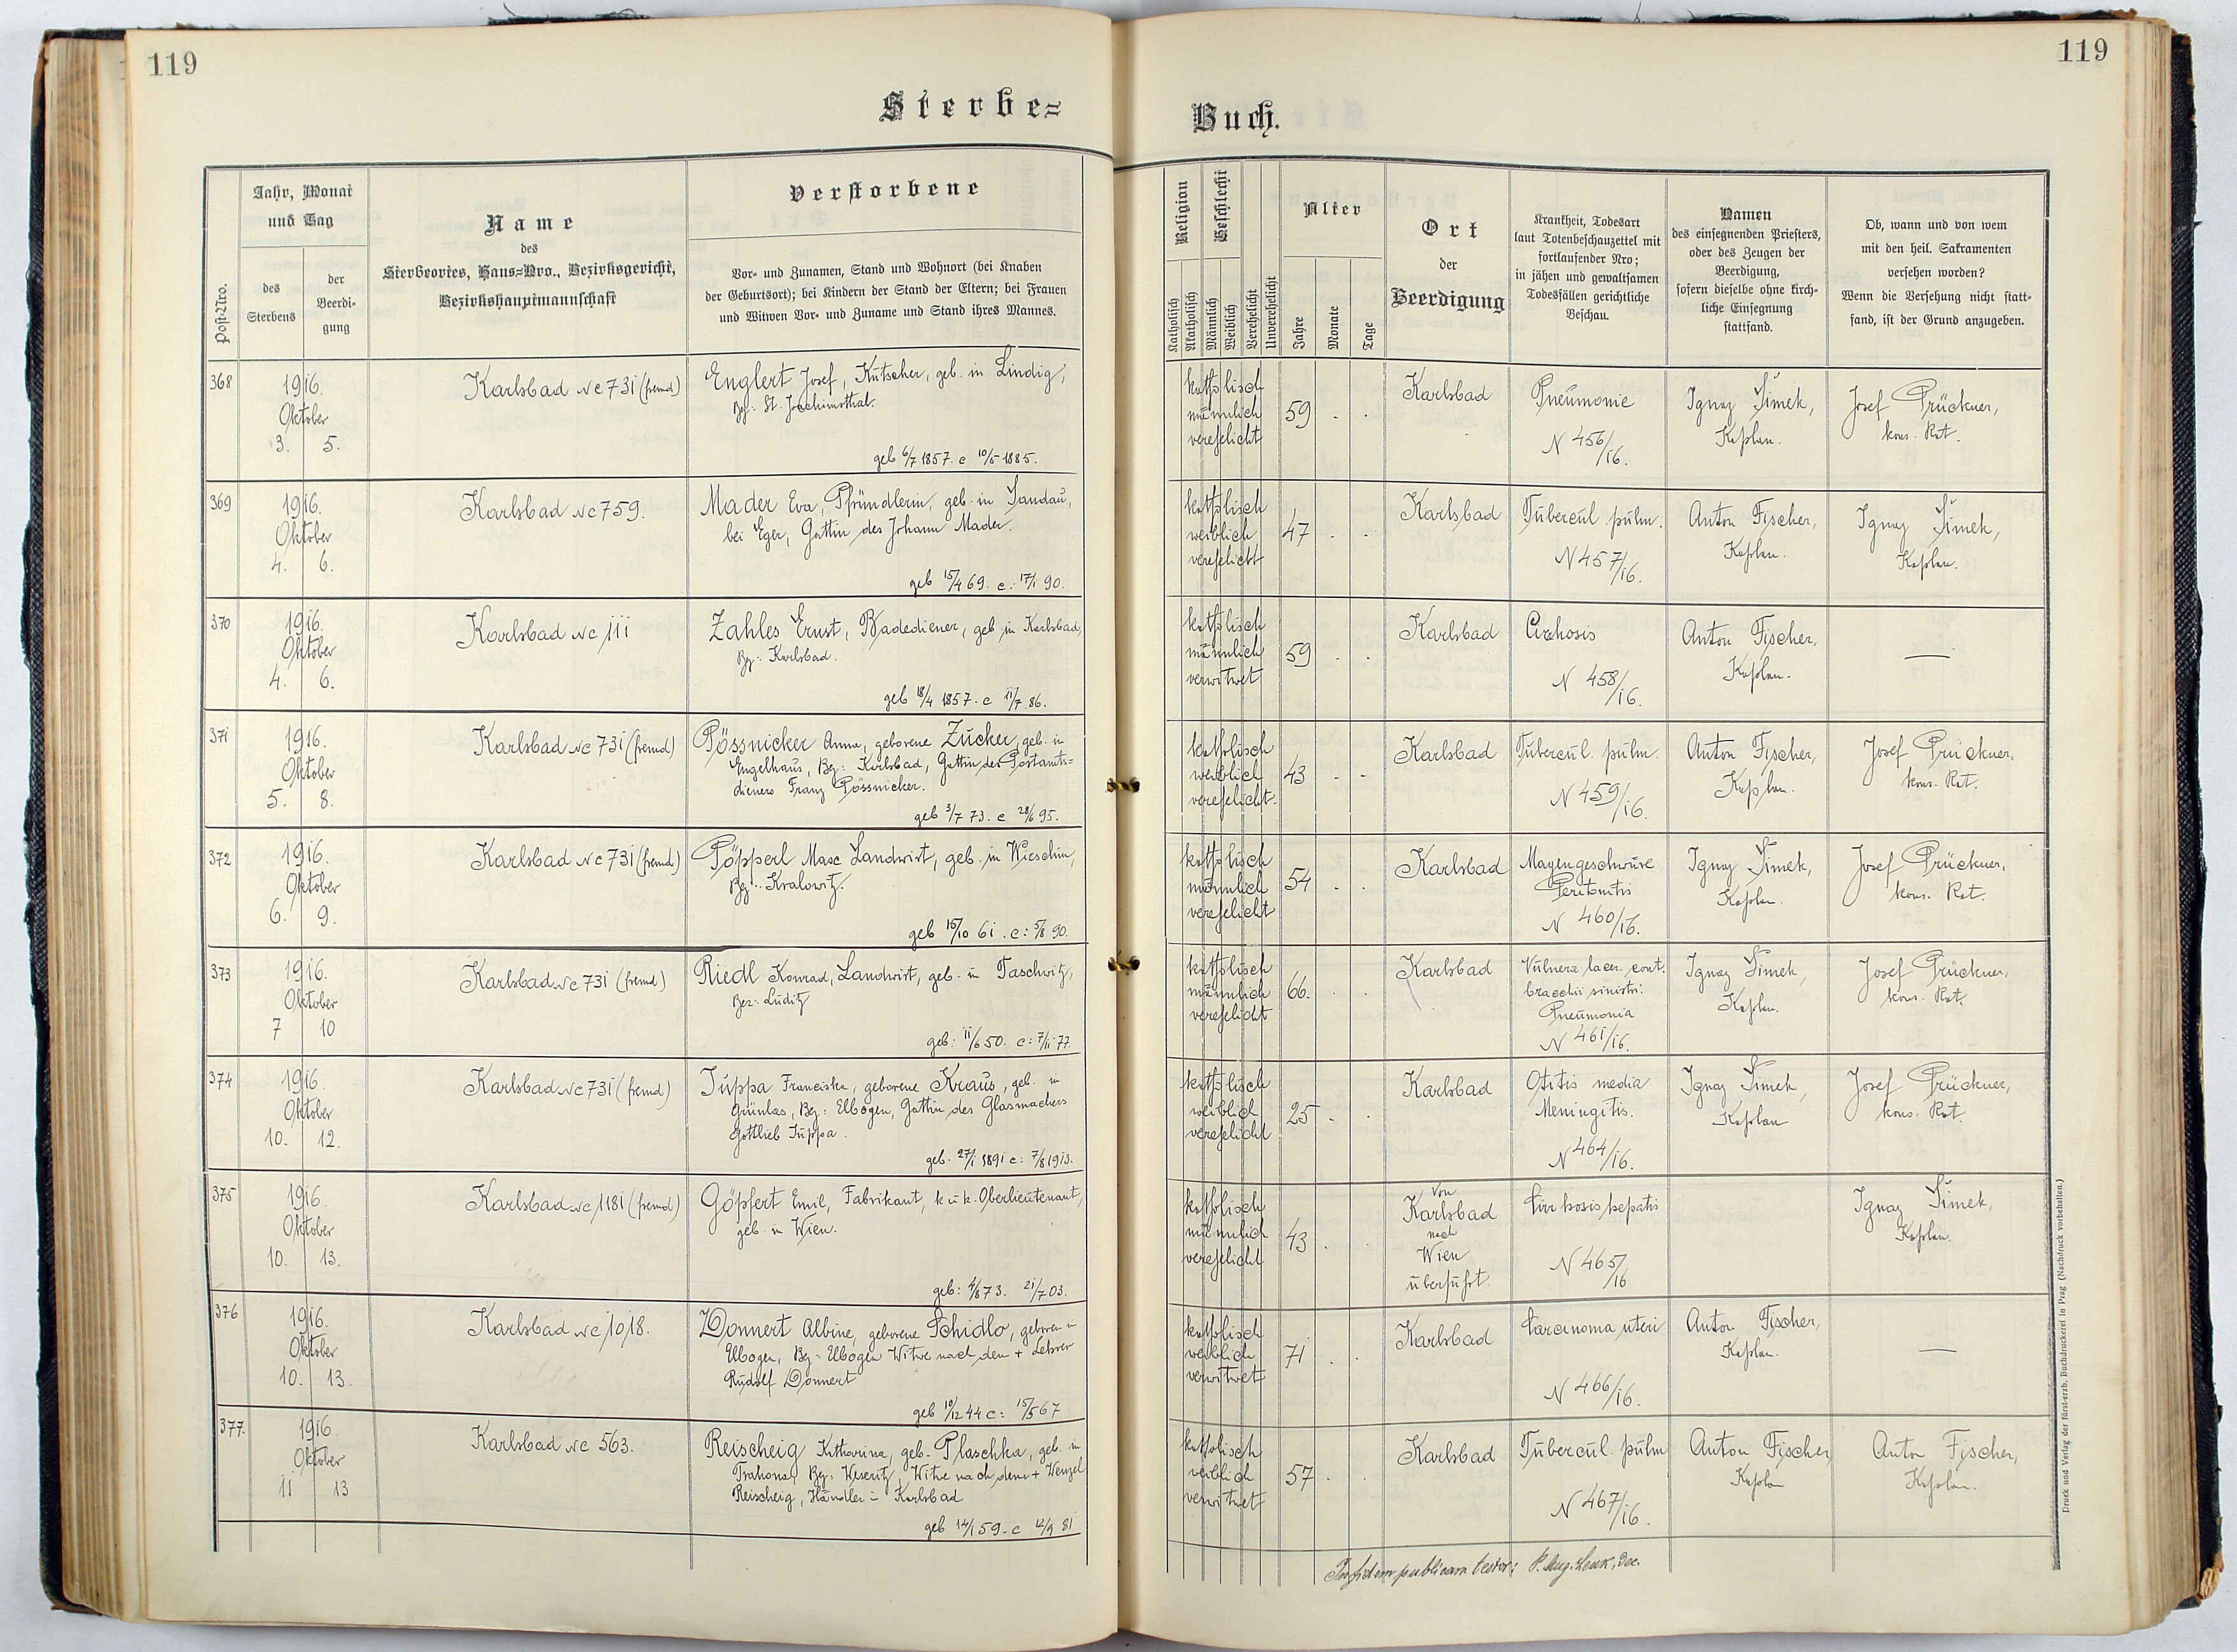 119
119
Sterbe=
Buch.
Post-Nro.
Jahr, Monat
und Tag
des
Sterbens
der
Beerdi-
gung
Name
des
Sterbeortes, Haus=Nro., Bezirksgericht,
Bezirkshauptmannschaft
Verstorbene
Vor- und Zunamen, Stand und Wohnort (bei Knaben
der Geburtsort); bei Kindern der Stand der Eltern; bei Frauen
und Witwen Vor- und Zuname und Stand ihres Mannes.
Religion
Katholisch
Akatholisch
Geschlecht
Männlich
Weiblich
Verehelicht
Unverehelicht
Alter
Jahre
Monate
Tage
Ort
der
Beerdigung
Krankheit, Todesart
laut Totenbeschauzettel mit
fortlaufender Nro;
in jähen und gewaltsamen
Todesfällen gerichtliche
Beschau.
Namen
des einsegnenden Priesters,
oder des Zeugen der
Beerdigung,
sofern dieselbe ohne kirch-
liche Einsegnung
stattfand.
Ob, wann und von wem
mit den heil. Sakramenten
versehen worden?
Wenn die Versehung nicht statt-
fand, ist der Grund anzugeben.
368
1916.
Oktober
3. 5.
Karlsbad Nc 731 (fremd)
Englert Josef, Kutscher, geb. in Lindig,
Bz: St. Joachimsthal.
geb 6/7 1857. c 10/5 1885.
katholisch
männlich
verehelicht
59 . .
Karlsbad
Pneumonie
N 456/16.
Ignaz Šimek,
Kaplan.
Josef Prückner,
kons. Rat.
369
1916.
Oktober
4. 6.
Karlsbad Nc 759.
Mader Eva, Pfründlerin, geb. in Sandau,
bei Eger, Gattin des Johann Mader.
geb 15/4 69. c: 17/1 90.
katholisch
weiblich
verehelicht
47 . .
Karlsbad
Tubercul pulm.
N 457/16.
Anton Fischer,
Kaplan.
Ignaz Šimek,
Kaplan.
370
1916.
Oktober
4. 6.
Karlsbad Nc 111
Zahles Ernst, Badediener, geb in Karlsbad,
Bz: Karlsbad.
geb 18/4 1857. c 11/7 86.
katholisch
männlich
verwitwet
59 . .
Karlsbad
Cirrhosis
N 458/16.
Anton Fischer,
Kaplan.
—
371
1916.
Oktober
5. 8.
Karlsbad Nc 731 (fremd)
Pössnicker Anna, geborene Zucker, geb. in
Engelhaus, Bz: Karlsbad, Gattin des Postamts=
dieners Franz Pössnicker.
geb 3/7 73. c 28/6 95.
katholisch
weiblich
verehelicht.
43 . .
Karlsbad
Tubercul. pulm.
N 459/16.
Anton Fischer,
Kaplan.
Josef Prückner,
kons. Rat.
372
1916.
Oktober
6. 9.
Karlsbad Nc 731 (fremd)
Pöpperl Max Landwirt, geb. in Wieschin,
Bz: Kralowitz.
geb 15/10 61. c: 5/8 90.
katholisch
männlich
verehelicht
54 . .
Karlsbad
Magengeschwüre
Peritonitis
N 460/16.
Ignaz Šimek,
Kaplan.
Josef Prückner,
kons. Rat.
373
1916.
Oktober
7 10
Karlsbad Nc 731 (fremd)
Riedl Konrad, Landwirt, geb. in Taschwitz,
Bez: Luditz
geb: 11/6 50. c: 7/11 77.
katholisch
männlich
verehelicht
66. . .
Karlsbad
Vulnera lacer. cont.
bracchii sinistri
Pneumonia
N 461/16.
Ignaz Šimek,
Kaplan.
Josef Prückner,
kons. Rat.
374
1916.
Oktober
10. 12.
Karlsbad Nc 731 (fremd)
Juppa Franciska, geborene Kraus, geb. in
Grünlas, Bz: Elbogen, Gattin des Glasmachers
Gottlieb Juppa.
geb. 27/1 1891 c: 7/8 1913.
katholisch
weiblich
verehelicht
25 . .
Karlsbad
Otitis media
Meningitis.
N 464/16.
Ignaz Šimek,
Kaplan
Josef Prückner,
kons. Rat.
375
1916.
Oktober
10. 13.
Karlsbad Nc 1181 (fremd)
Göpfert Emil, Fabrikant, k. u. k. Oberlieutenant,
geb. in Wien.
geb: 4/8 73. 21/7 03.
katholisch
männlich
verehelicht
43 . .
Von
Karlsbad
nach
Wien
überführt.
Cirrhosis hepatis
N 465/16
Ignaz Šimek,
Kaplan.
376
1916.
Oktober
10. 13.
Karlsbad Nc 1018.
Donnert Albine, geborene Schidlo, geboren in
Elbogen, Bz: Elbogen Witwe nach dem + Lehrer
Rudolf Donnert
geb 10/12 44 c: 15/5 67
katholisch
weiblich
verwitwet
71 . .
Karlsbad
Carcinoma uteri
N 466/16.
Anton Fischer,
Kaplan.
—
377.
1916.
Oktober
11 13
Karlsbad Nc 563.
Reischeig Katharina, geb. Plaschka, geb. in
Trahona, Bz: Weseritz, Witwe nach dem + Wenzel
Reischeig, Händler in Karlsbad
geb 14/1 59. c 12/9 81
katholisch
weiblich
verwitwet
57 . .
Karlsbad
Tubercul. pulm
N 467/16.
Anton Fischer,
Kaplan
Anton Fischer,
Kaplan.
In fidem publicam testor: P. Aug. Lenk, Dec.
Druck und Verlag der fürst-erzb. Buchdruckerei in Prag (Nachdruck vorbehalten.)